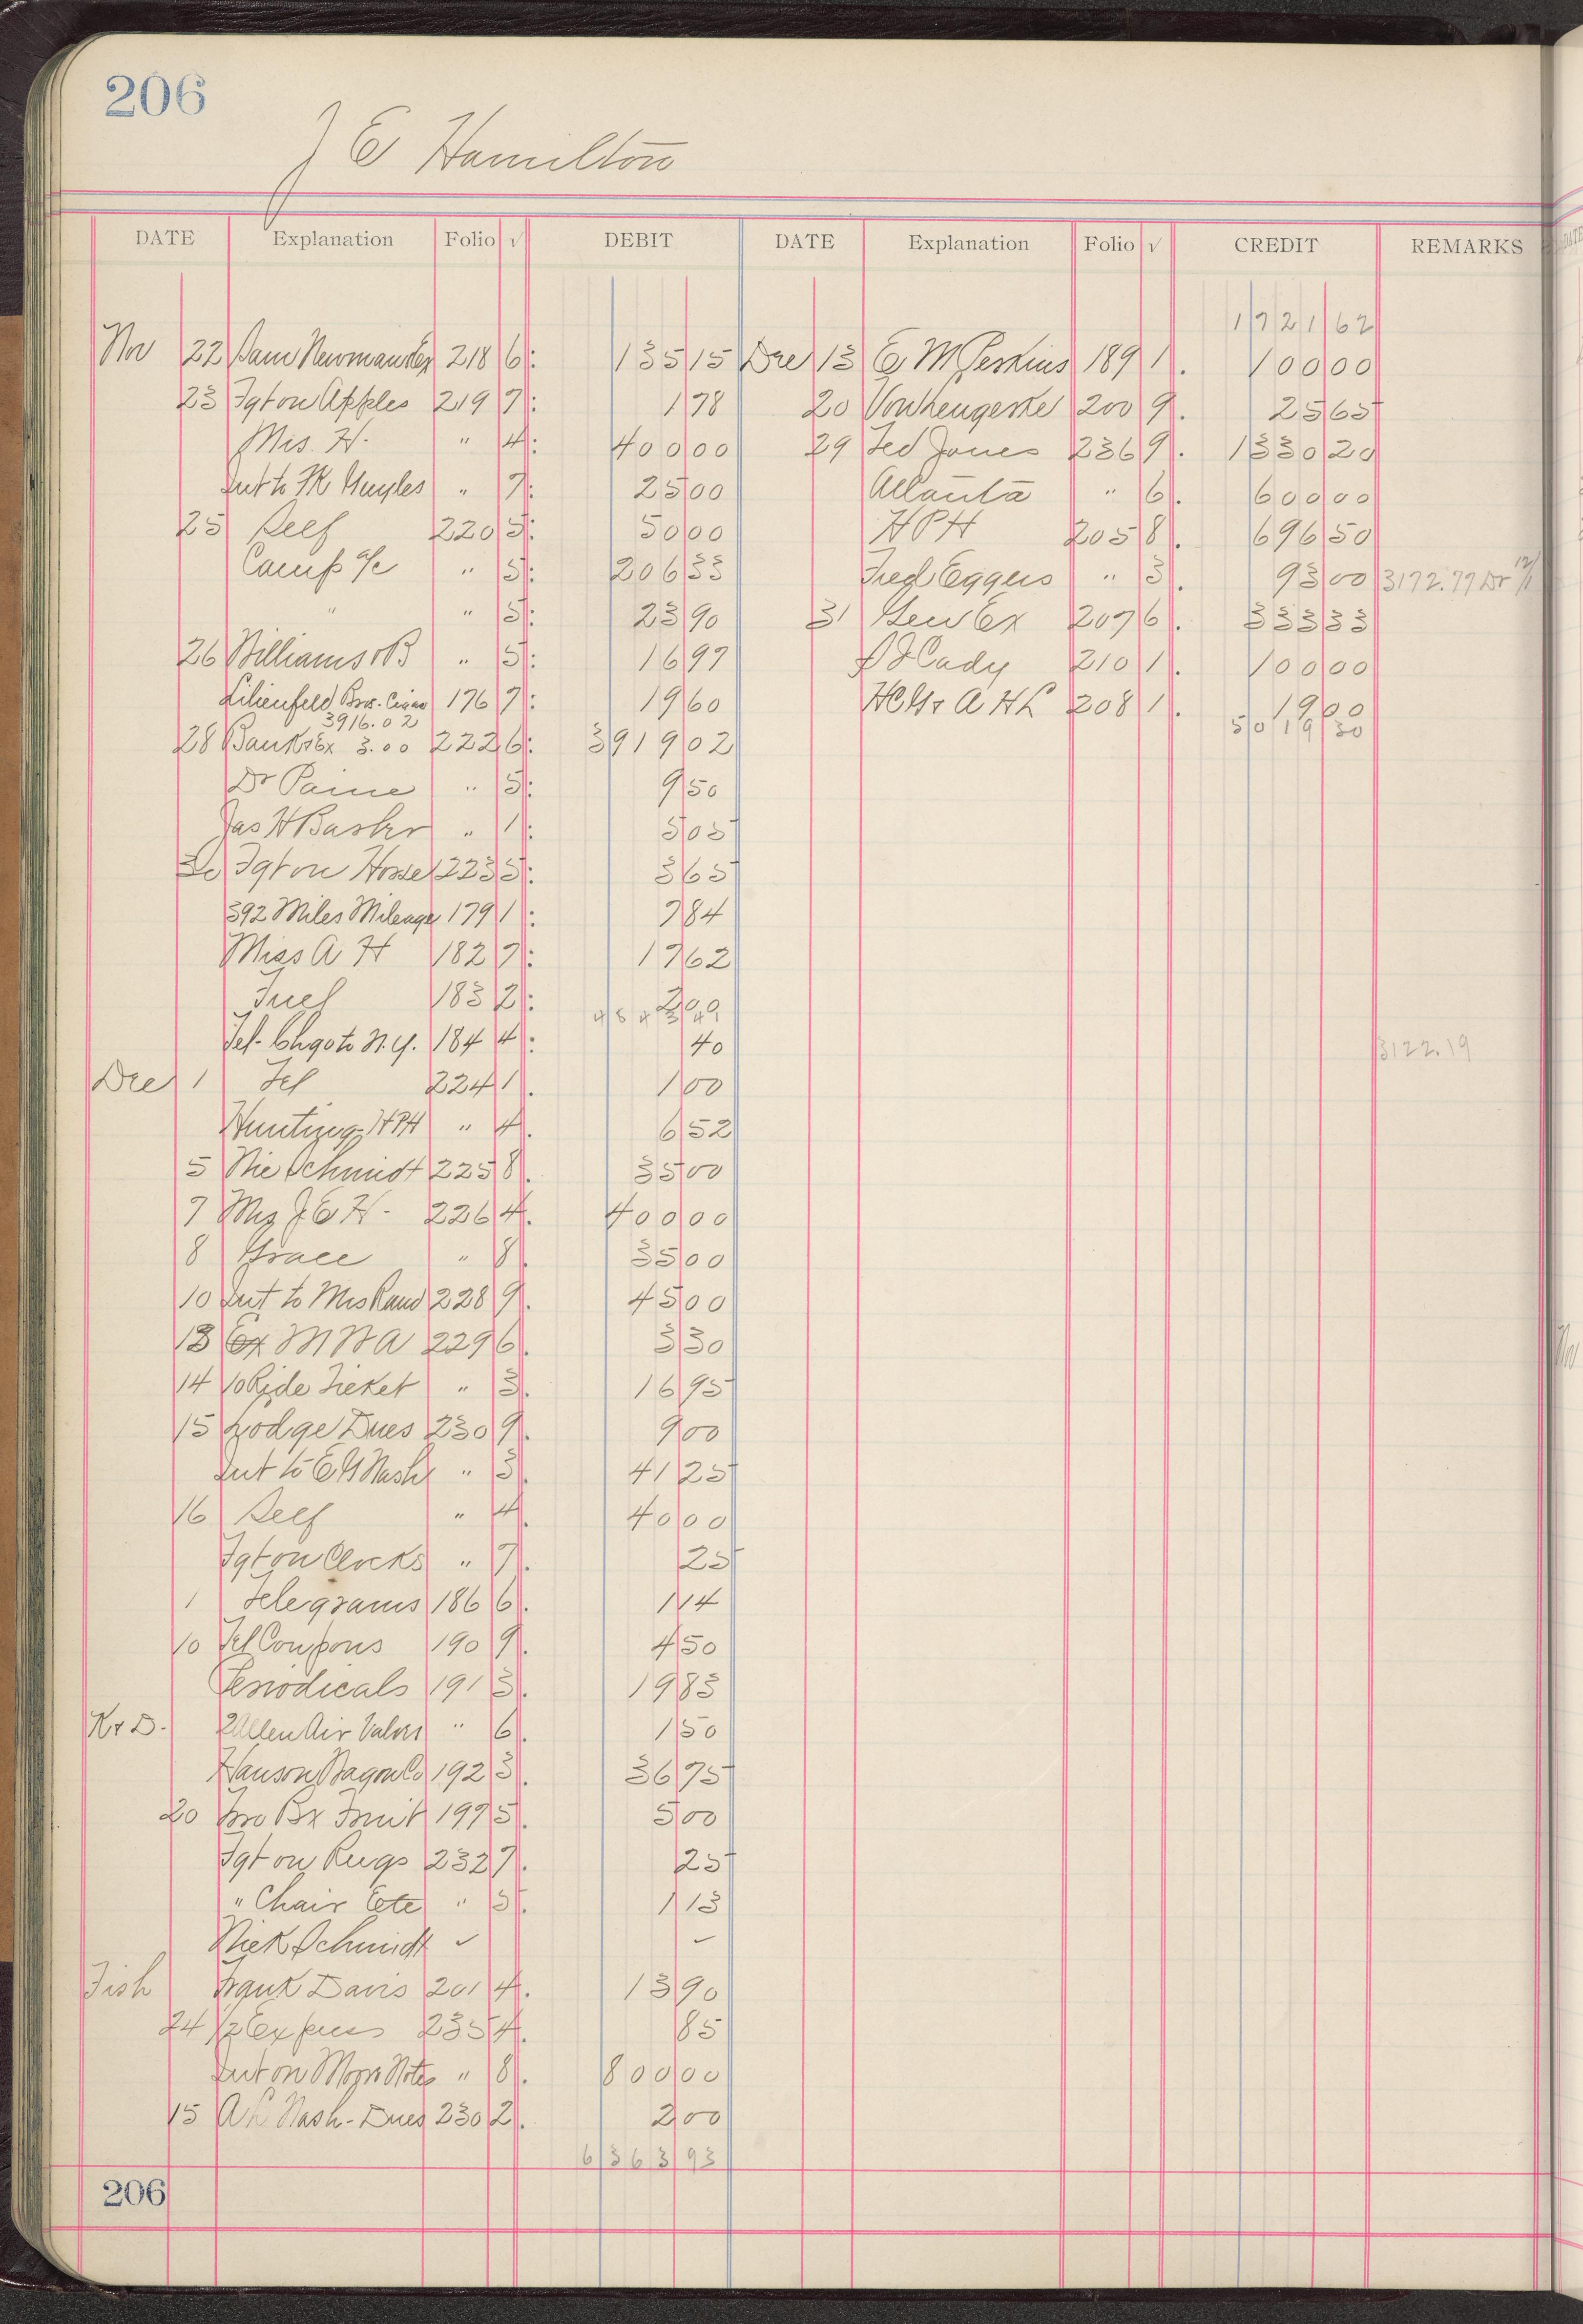 206
J E Hamilton
DATE Explanation Folio √ DEBIT DATE Explanation Folio √ CREDIT REMARKS
1721 62
Nov 22 Sam Newman Ex 218 6: 135 15 Dec 13 E M Perkins 189 1. 100 00
23 Fgt on Apples 219 7: 1 78 20 Vonhengerke 200 9. 25 65
Mrs. H. " 4: 400 00 29 Ted Jones 236 9. 1330 20
Int to " 7: 25 00 Atlanta " 6. 600 00
25 Self 220 5: 50 00 H P H 205 8. 696 50
Camp a/c " 5: 206 33 Fred Eggers " 3. 93 00 3172.77 Dr 12/1
" " 5: 23 90 31 Gen Ex 207 6. 333 33
26 Williams & B " 5: 16 97 Cady 210 1. 100 00
Lilienfeld Bros. Cigars 176 7: 19 60 A H L 208 1. 19 00
3916.02
28 Bank & Ex 3.00 222 6: 3919 02 5019 30
Dr Paine " 5: 9 50
Jas H " 1: 5 05
30 Fgt on Horse 223 5: 3 65
392 Miles Mileage 179 1: 7 84
Miss A H 182 7: 17 62
Fuel 183 2: 2 00
4843 49
Tel. Chgo to N.Y. 184 4: 40 3122.19
Dec 1 Tel 224 1. 1 00
Hunting- HPH " 4. 6 52
5 Nic Schmidt 225 8. 35 00
7 Mrs J E H - 226 4. 400 00
8 Grace " 8. 35 00
10 Int to Mrs Rand 228 9. 45 00
13 Ex M W A 229 6. 3 30
14 10 Ride Ticket " 3. 16 95
15 Lodge Dues 230 9. 9 00
Int to E G Nash " 3. 41 25
16 Self " 4. 40 00
Fgt on Clocks " 7. 25
1 Telegrams 186 6. 1 14
10 Tel Coupons 190 9. 4 50
Periodicals 191 3. 19 83
K & D. 2 Allen Air Valves " 6. 1 50
Hanson Wagon Co 192 3. 36 75
20 Two Bx Fruit 199 5. 5 00
Fgt on Rugs 232 7. 25
" Chair Etc " 5. 1 13
Nick Schmidt ✓ –
Fish Frank Davis 201 4. 13 90
24 1/2 Express 235 4. 85
Int on Notes " 8. 800 00
15 A L Nash - Dues 230 2. 2 00
6363 93
206